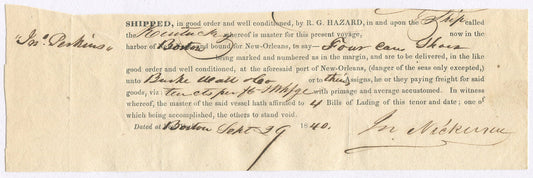 SHIPPED, in good order and well conditioned, by R. G. HAZARD, in and upon the Ship called
the Kentucky whereof is master for this present voyage, now in the
"Jno. Perkins" harbor of Boston and bound for New-Orleans, to say— Four cases Shoes
being marked and numbered as in the margin, and are to be delivered, in the like
good order and well conditioned, at the aforesaid port of New-Orleans, (danger of the seas only excepted,)
unto Burke Watt & Co or to their assigns, he or they paying freight for said
goods, viz. ten cts per ft with primage and average accustomed. In witness
whereof, the master of the said vessel hath affirmed to 4 Bills of Lading of this tenor and date; one of
which being accomplished, the others to stand void.
Dated at Boston Sept 29 1840. Jn. Nickerson